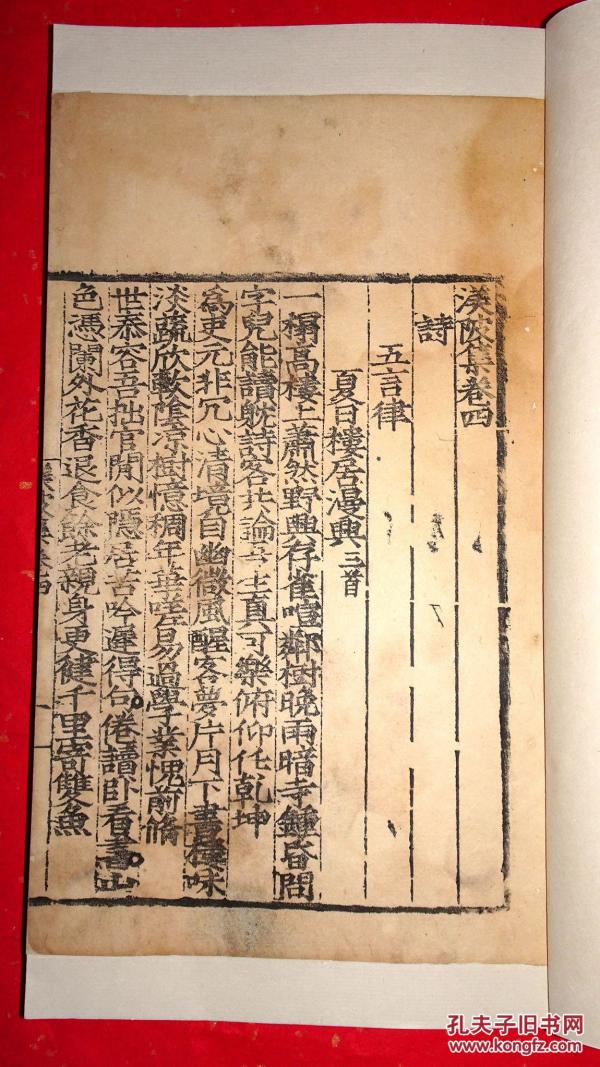 渼陂集卷四
詩
五言律
夏日樓居漫興三首
一榻高樓上蕭然野興存雀喧鄰樹晚雨暗寺鍾昏問
字兒能讀躭詩客共論吾生真可樂俯仰任乾坤
為吏元非冗心清境自幽微風醒客夢片月下書樓味
淡蔬欣軟陰凉樹憶稠年華嗟易過學業愧前脩
世泰容吾拙官閒似隱居苦吟遲得句倦讀卧看書山
色憑闌外花香退食餘老親身更健千里寄雙魚
渼陂集卷四
孔夫子旧书网
www.kongfz.com